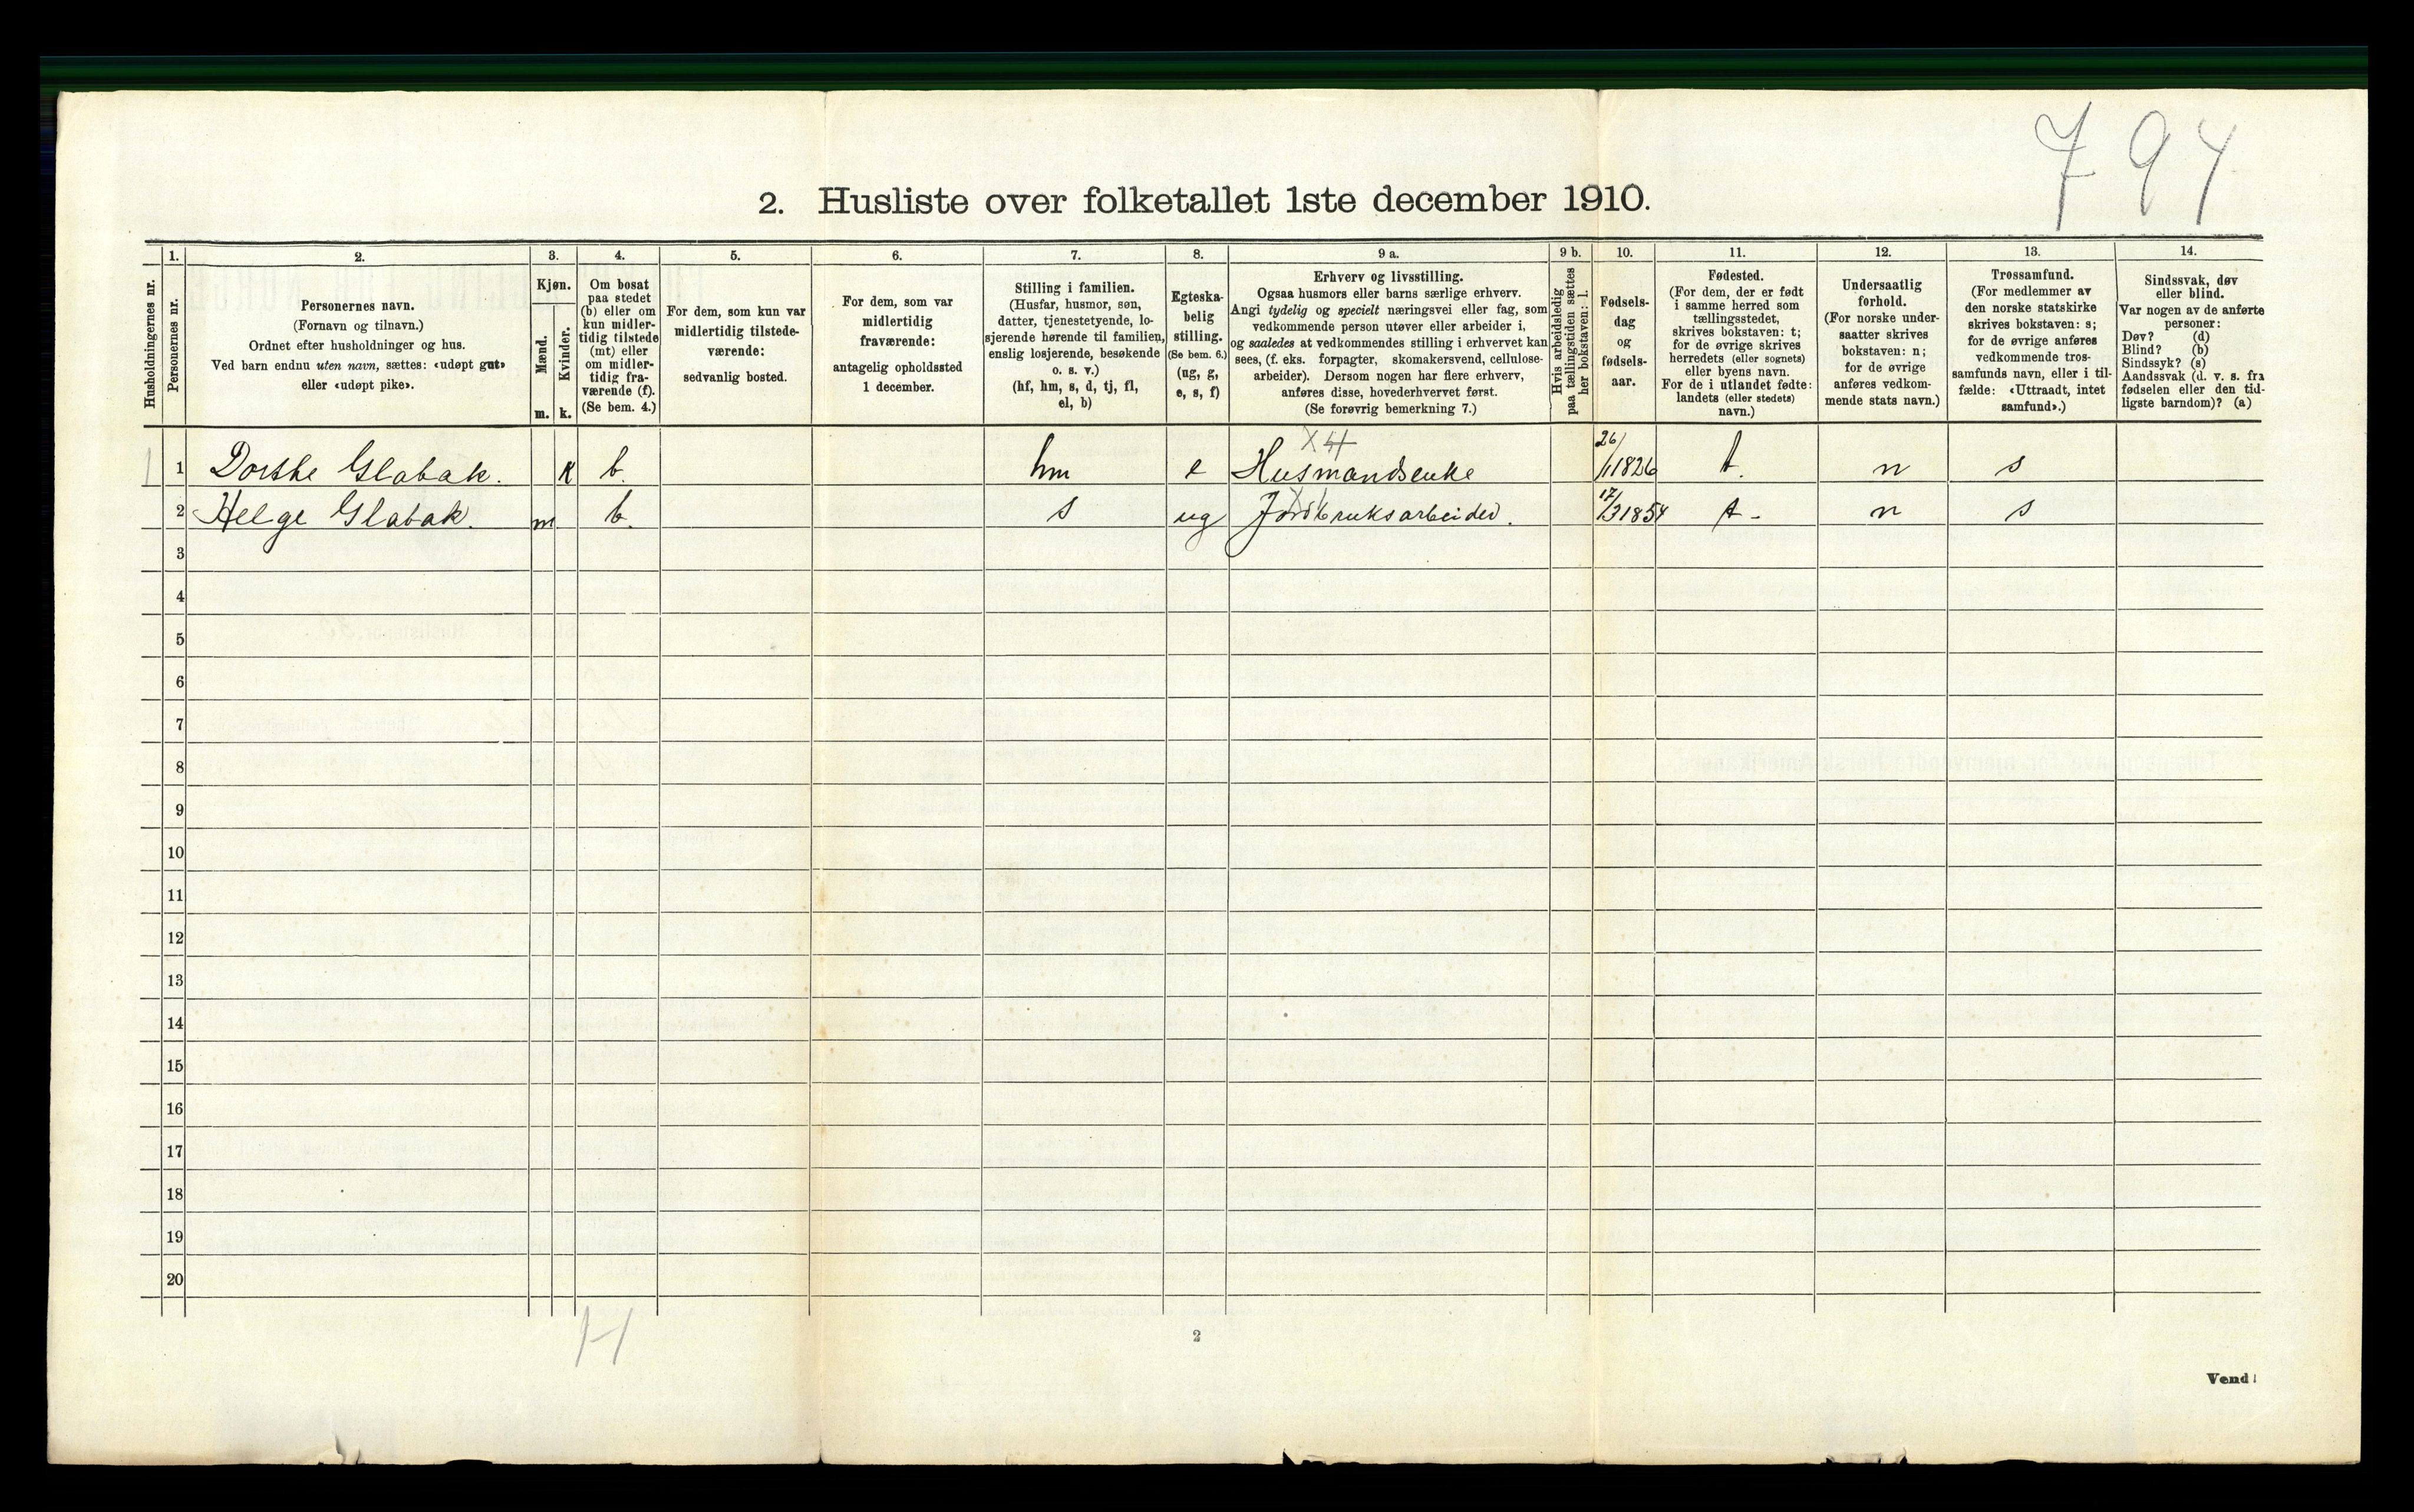 794
2. Husliste over folketallet 1ste december 1910.
Husholdningernes nr.
1.
Personernes nr.
2.
Personernes navn.
(Fornavn og tilnavn.)
Ordnet efter husholdninger og hus.
Ved barn endnu uten navn, sættes: «udøpt gut»
eller «udøpt pike».
3.
Kjøn.
Mænd.
Kvinder.
m. k.
4.
Om bosat
paa stedet
(b) eller om
kun midler-
tidig tilstede
(mt) eller
om midler-
tidig fra-
værende (f).
(Se bem. 4.)
5.
For dem, som kun var
midlertidig tilstede-
værende:
sedvanlig bosted.
6.
For dem, som var
midlertidig
fraværende:
antagelig opholdssted
1 december.
7.
Stilling i familien.
(Husfar, husmor, søn,
datter, tjenestetyende, lo-
sjerende hørende til familien,
enslig losjerende, besøkende
o. s. v.)
(hf, hm, s, d, tj, fl,
el, b)
8.
Egteska-
belig
stilling.
(Se bem. 6.)
(ug, g,
e, s, f)
9 a.
Erhverv og livsstilling.
Ogsaa husmors eller barns særlige erhverv.
Angi tydelig og specielt næringsvei eller fag, som
vedkommende person utøver eller arbeider i,
og saaledes at vedkommendes stilling i erhvervet kan
sees, (f. eks. forpagter, skomakersvend, cellulose-
arbeider). Dersom nogen har flere erhverv,
anføres disse, hovederhvervet først.
(Se forøvrig bemerkning 7.)
9 b.
Hvis arbeidsledig
paa tællingstiden sættes
her bokstaven: l.
10.
Fødsels-
dag
og
fødsels-
aar.
11.
Fødested.
(For dem, der er født
i samme herred som
tællingsstedet,
skrives bokstaven: t;
for de øvrige skrives
herredets (eller sognets)
eller byens navn.
For de i utlandet fødte:
landets (eller stedets)
navn.)
12.
Undersaatlig
forhold.
(For norske under-
saatter skrives
bokstaven: n;
for de øvrige
anføres vedkom-
mende stats navn.)
13.
Trossamfund.
(For medlemmer av
den norske statskirke
skrives bokstaven: s;
for de øvrige anføres
vedkommende tros-
samfunds navn, eller i til-
fælde: «Uttraadt, intet
samfund».)
14.
Sindssvak, døv
eller blind.
Var nogen av de anførte
personer:
Døv? (d)
Blind? (b)
Sindssyk? (s)
Aandssvak (d. v. s. fra
fødselen eller den tid-
ligste barndom)? (a)
1 1 Dorthe Glabak. k b. hm e Husmandsenke 26/1 1826 t. n s
2 Helge Glabak. m b. s ug Jordbruksarbeider. 17/3 1854 t- n s
3
4
5
6
7
8
9
10
11
12
13
14
15
16
17
18
19
20
H
2
Vend!